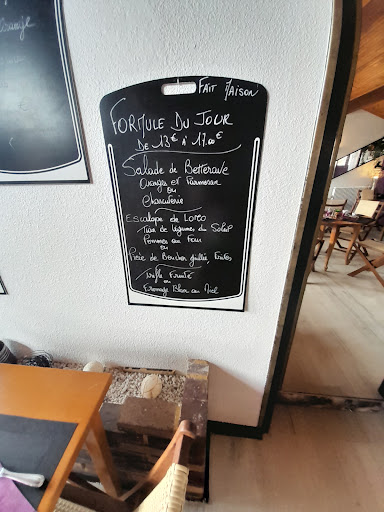 orange
Fait Maison
Formule Du Jour
De 13€ à 17.00€
Salade de Betterave
Oranges et Parmesan
ou
Charcuterie
Escalope de Loro
Tian de Légumes du Soleil
Pommes au Four
ou
Pièce de Boucher grillée, Frites
Truffe Fruité
ou
Fromage Blanc au Miel